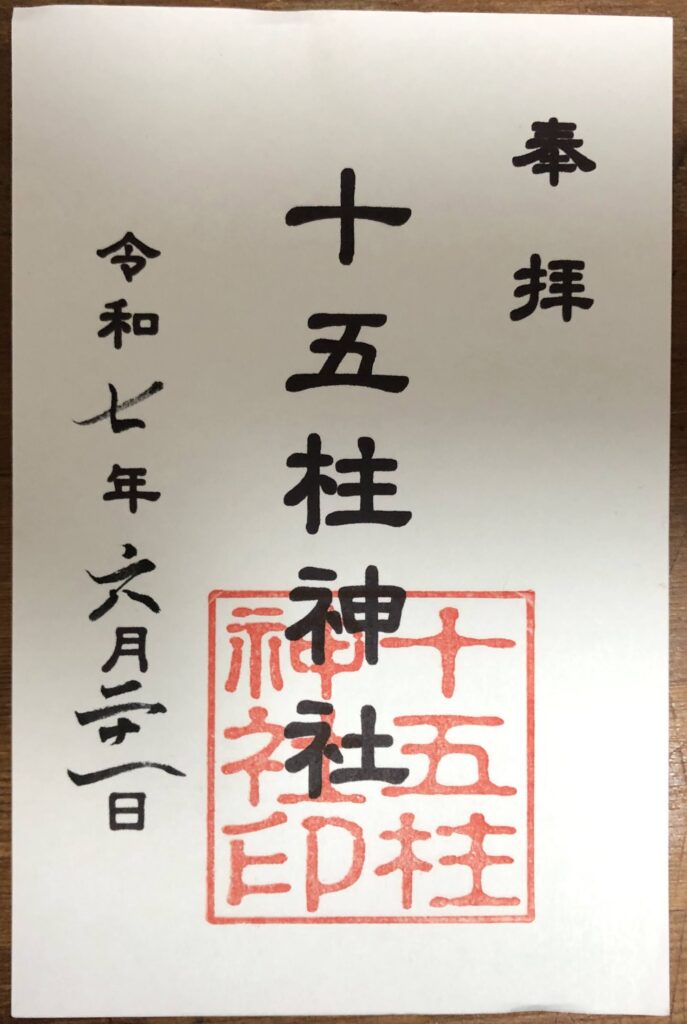 奉拝
十五柱神社
十五柱
神社印
令和七年六月二十一日